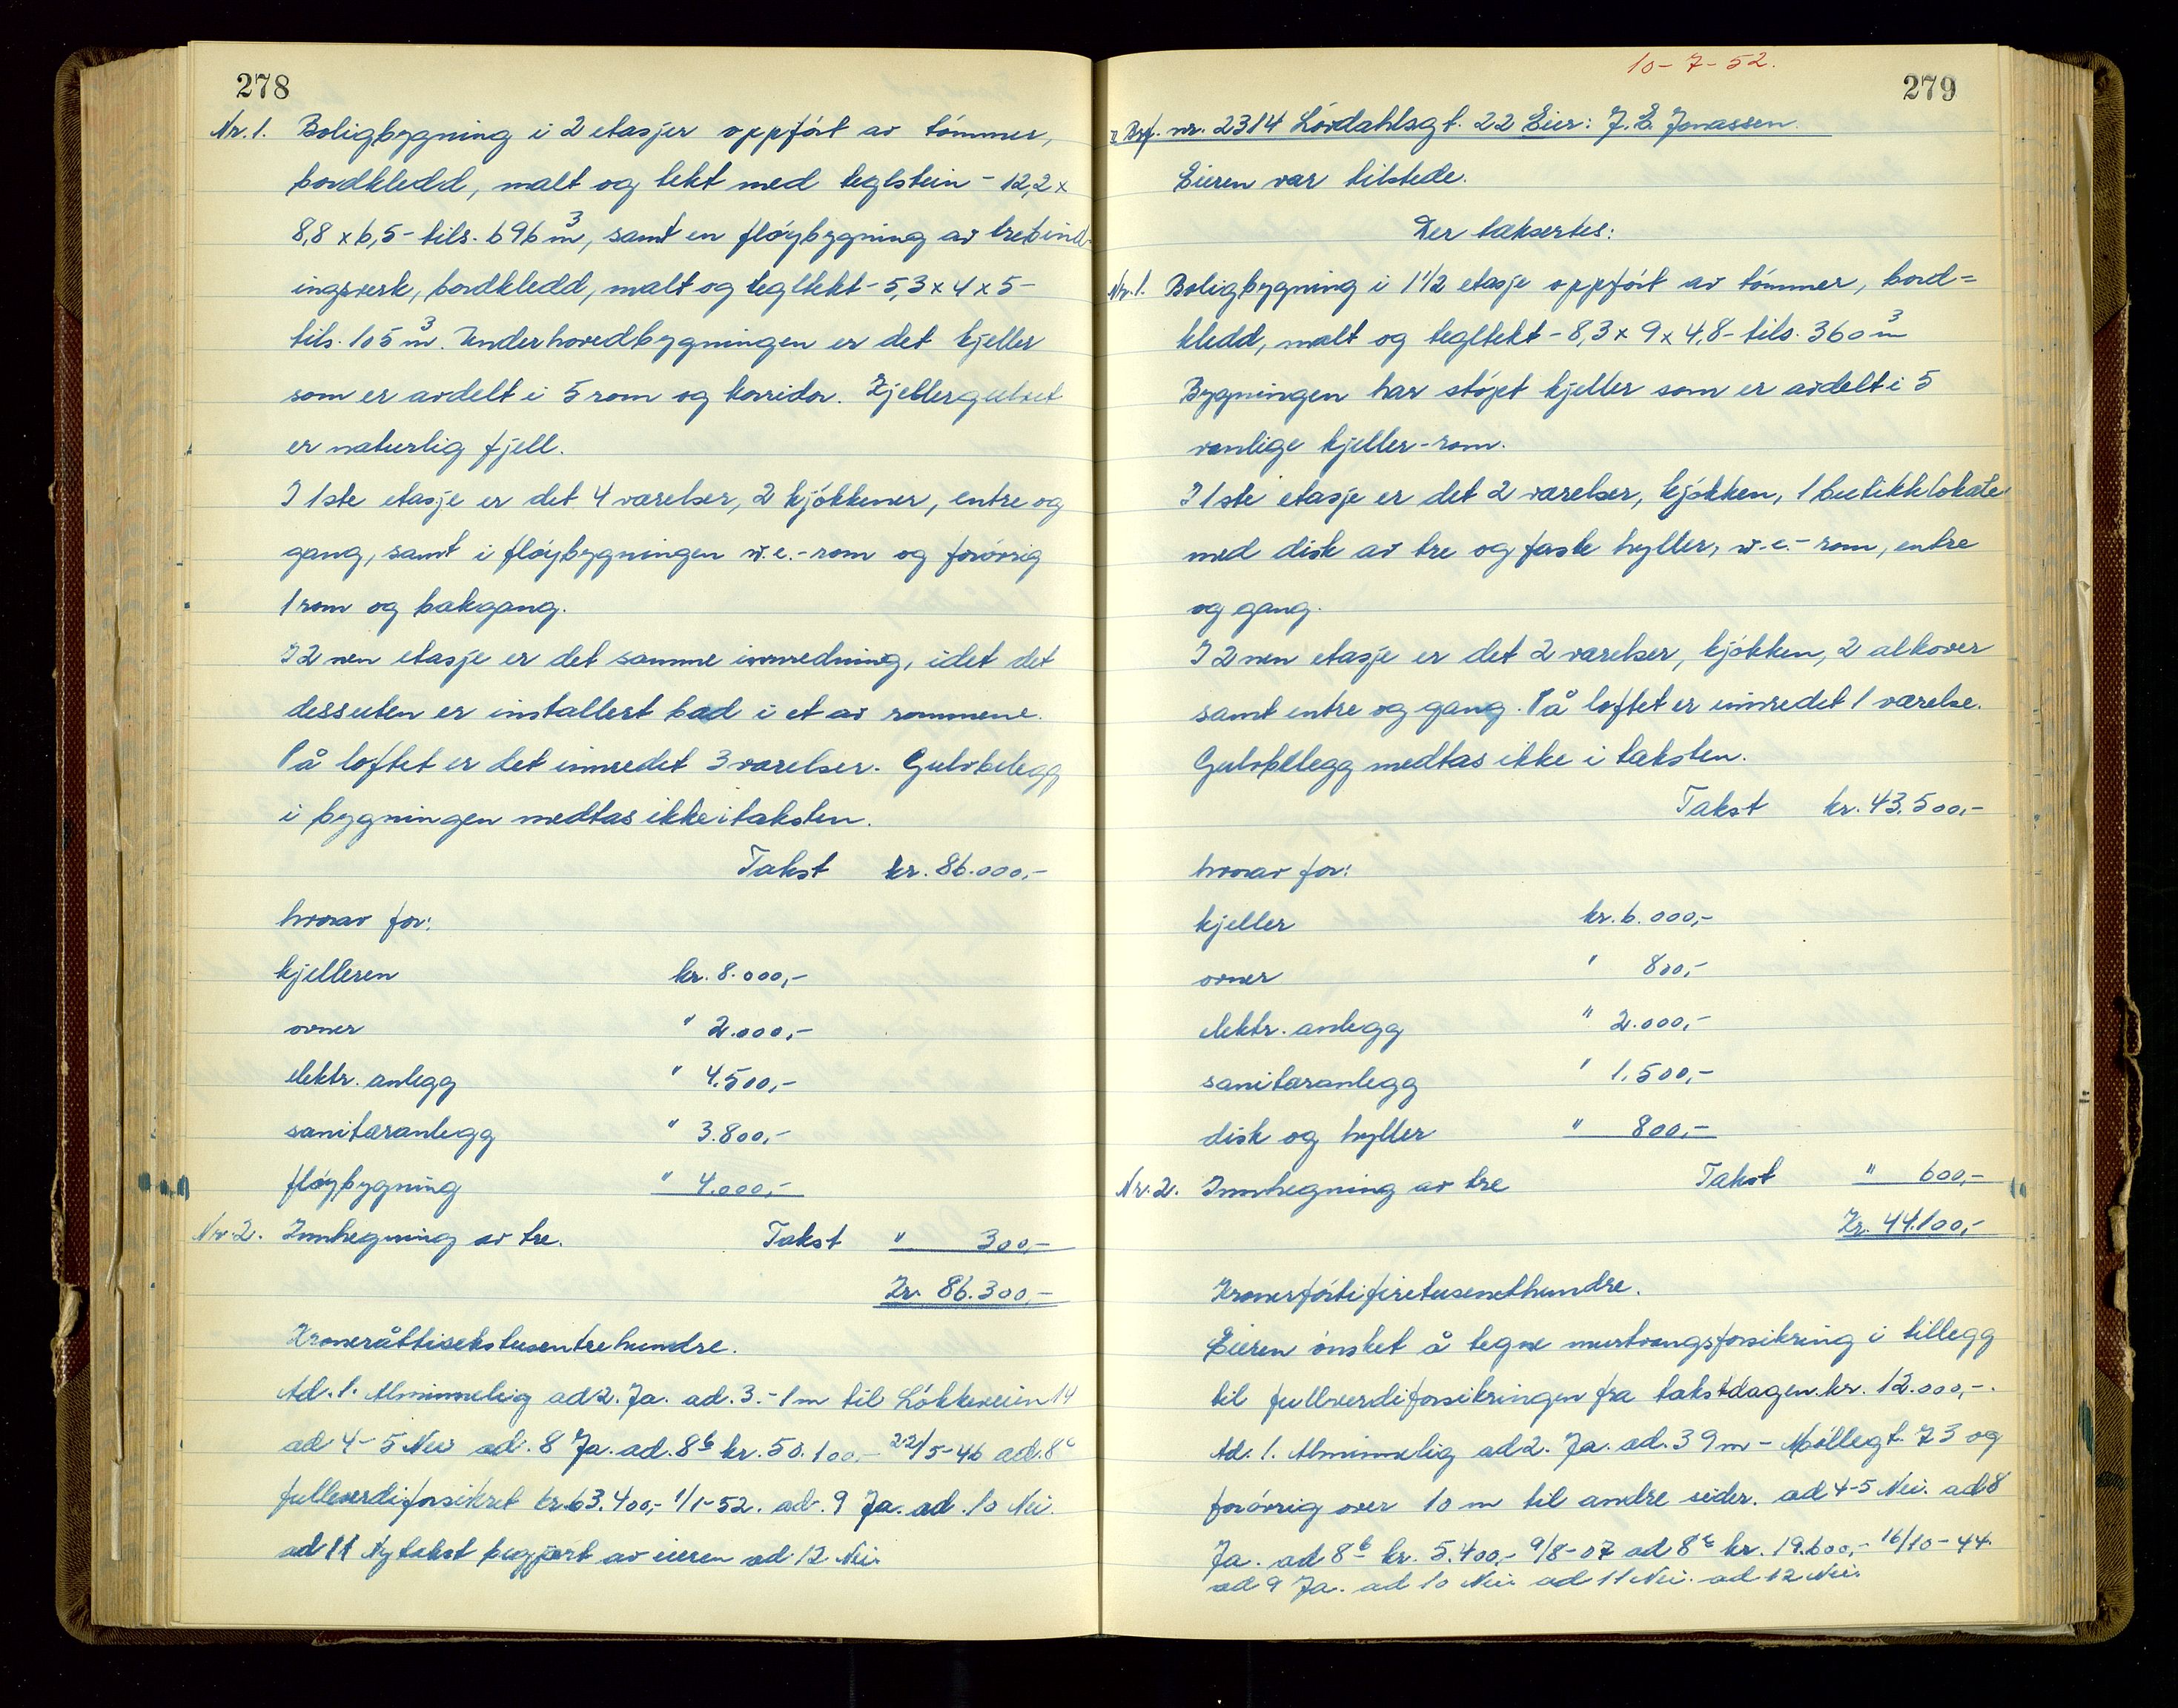 278
Nr. 1. Boligbygning i 2 etasjer oppført av tømmer,
bordkledd, malt og tekt med teglstein - 12,2 x
8,8 x 6,5 - tils. 696 m³, samt en fløybygning av trebind-
ingsverk, bordkledd, malt og tegltekt - 5,3 x 4 x 5 -
tils. 105 m³. Under hovedbygningen er det kjeller
som er avdelt i 5 rom og korridor. Kjellergulvet
er naturlig fjell.
I 1ste etasje er det 4 værelser, 2 kjøkkener, entre og
gang, samt i fløybygningen w.c.-rom og forøvrig
1 rom og bakgang.
I 2nen etasje er det samme innredning, idet det
dessuten er installert bad i et av rommene.
På loftet er det innredet 3 værelser. Gulvbelegg
i bygningen medtas ikke i taksten.
Takst kr. 86.000,-
hvorav for:
kjelleren kr. 8.000,-
ovner " 2.000,-
elektr. anlegg " 4.500,-
sanitæranlegg " 3.800,-
fløybygning " 4.000,-
Nr 2. Innhegning av tre. Takst " 300,-
Kr. 86.300,-
Kroneråttisekstusentrehundre.
Ad. 1. Alminnelig ad 2. Ja. ad. 3. - 1 m til Løkkeveien 14
ad 4 - 5 Nei ad. 8 Ja. ad. 8b kr. 50.100,- 22/5-46 ad. 8c
fullverdiforsikret kr. 63.400,- 1/1-52. ad. 9 Ja. ad. 10 Nei.
ad 11 Ny takst begjært av eieren ad. 12 Nei.
10-7-52.
279
Brf. nr. 2314 Lövdahlsgt. 22 Eier: J. E. Jonassen.
Eieren var tilstede.
Der taksertes:
Nr. 1. Boligbygning i 1 1/2 etasje oppført av tømmer, bord=
kledd, malt og tegltekt - 8,3 x 9 x 4,8 - tils. 360 m³
Bygningen har støpt kjeller som er avdelt i 5
vanlige kjeller-rom.
I 1ste etasje er det 2 værelser, kjøkken, 1 butikklokale
med disk av tre og faste hyller, w.c.-rom, entre
og gang.
I 2nen etasje er det 2 værelser, kjøkken, 2 alkover
samt entre og gang. På loftet er innredet 1 værelse.
Gulvbelegg medtas ikke i taksten.
Takst kr. 43.500,-
hvorav for:
kjeller kr. 6.000,-
ovner " 800,-
elektr. anlegg " 2.000,-
sanitæranlegg " 1.500,-
disk og hyller " 800,-
Nr. 2. Innhegning av tre Takst " 600,-
Kr. 44.100,-
Kronerførtifiretusenethundre.
Eieren ønsket å tegne murtvangsforsikring i tillegg
til fullverdiforsikringen fra takstdagen. kr. 12.000,-.
Ad. 1. Alminnelig ad 2. Ja. ad. 3 9 m - Møllegt. 73 og
forøvrig over 10 m til andre sider. ad 4-5 Nei. ad 8
Ja. ad 8b kr. 5.400,- 9/8-07 ad 8c kr. 19.600,- 16/10-44.
ad 9 Ja. ad 10 Nei ad 11 Nei. ad 12 Nei.